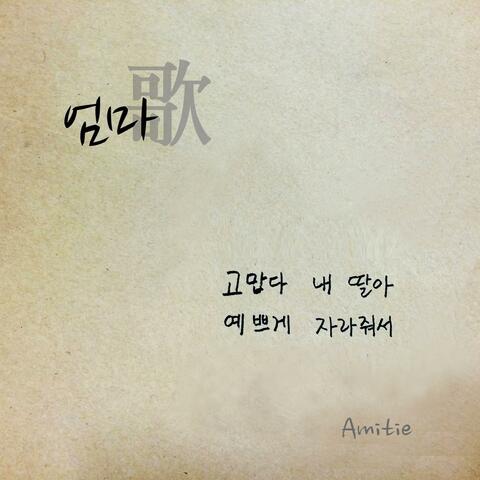 엄마歌
고맙다 내 딸아
예쁘게 자라줘서
Amitie